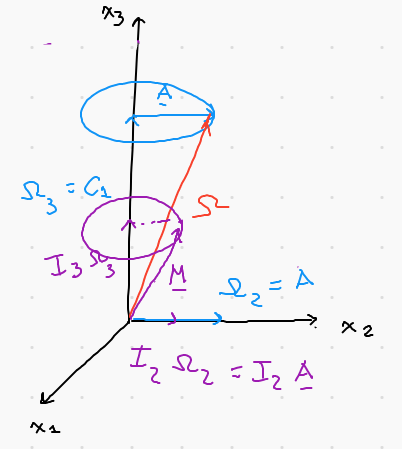 x₃
A
Ω₃ = C₁
Ω
I₃ Ω₃
M
Ω₂ = A
x₂
I₂ Ω₂ = I₂ A
x₁